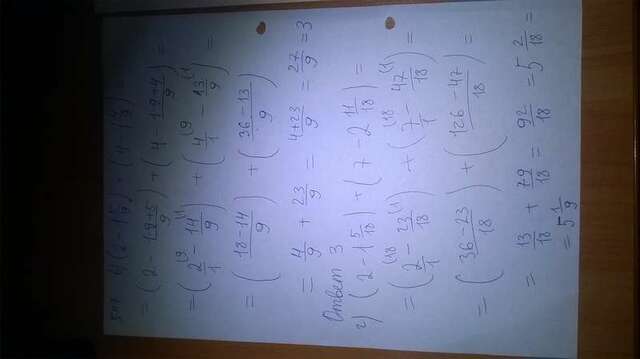 в) (2 - 1 5/9) + (4 - 1 4/9) =
= (2 - (1·9+5)/9) + (4 - (1·9+4)/9) =
= (2/1 (9 - 14/9 (1) + (4/1 (9 - 13/9 (1) =
= ((18-14)/9) + ((36-13)/9)
= 4/9 + 23/9 = (4+23)/9 = 27/9 = 3
Ответ 3
г) (2 - 1 5/18) + (7 - 2 11/18) =
= (2/1 (18 - 23/18 (1) + (7/1 (18 - 47/18 (1) =
= ((36-23)/18) + ((126-47)/18) =
= 13/18 + 79/18 = 92/18 = 5 2/18 =
= 5 1/9